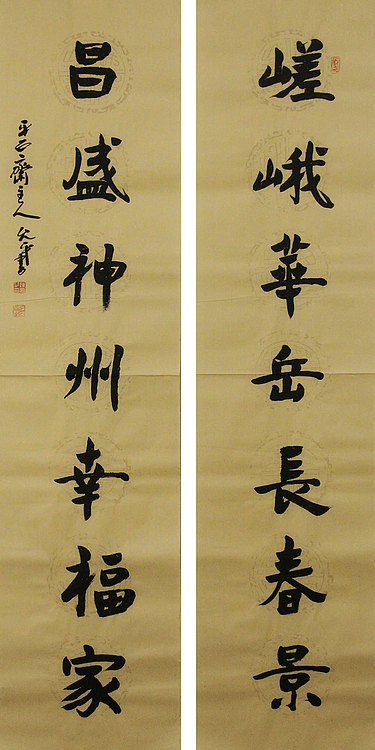 嵯峨華岳長春景
昌盛神州幸福家
平正齋主人